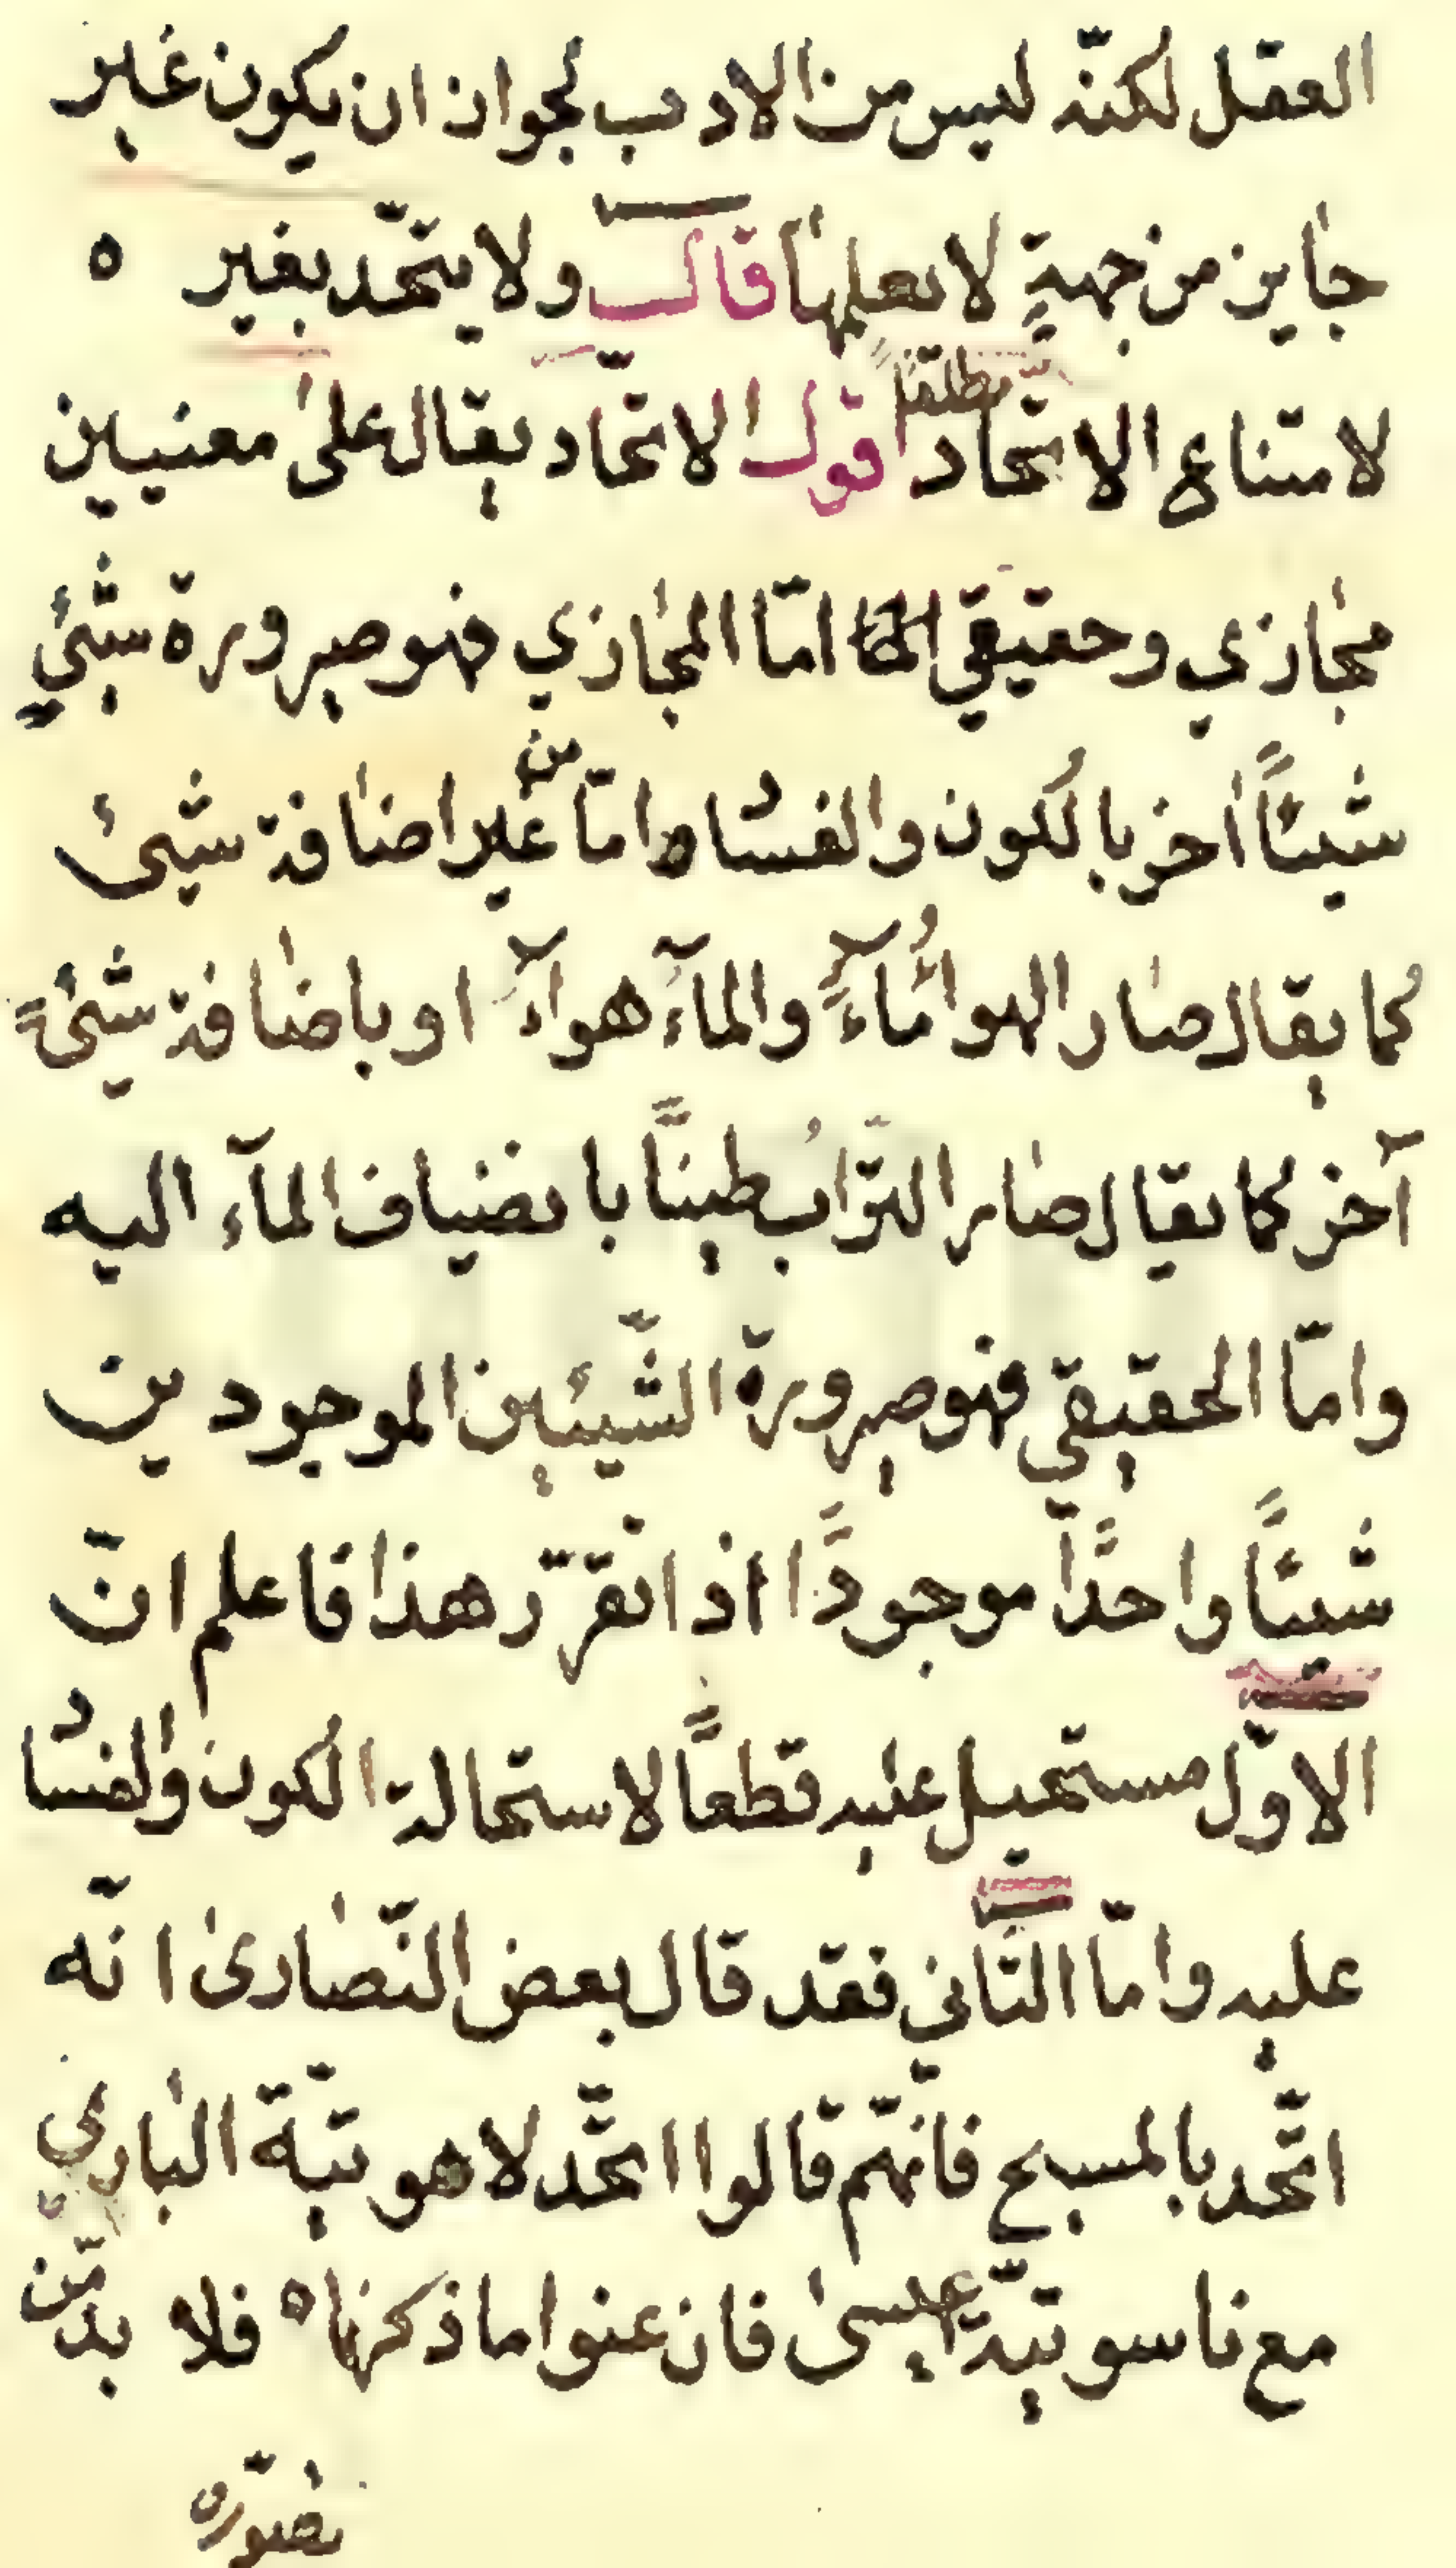 العقل لكنّه ليس من الادب لجواز ان يكون غير
جايز من جهةٍ لا يعلمها قال ولا يتحّد بغيره
لامتناع الاتحاد مطلقاً اقول الاتحّاد يقال على معنيين
مجازي وحقيقي امّا المجازي فهو صيرورة شيءٍ
شيئاً اخر بالكون والفساد امّا من غير اضافة شيئ
كما يقال صار الهواءُ مآءً والمآءُ هوآءً او باضافة شيءً
آخر كما يقال صار الترّابُ طيناً بانضياف المآء اليه
وامّا الحقيقي فهو صيرورة الشّيئين الموجودين
شيئاً واحداً موجوداً اذا تقرّر هذا فاعلم انّ
الاوّل مستحيل عليه قطعاً لاستحالة الكون والفساد
عليه وامّا الثّاني فقد قال بعض النّصارى انّه
اتّحد بالمسيح فانّهم قالوا اتحّد لاهوتيّة الباري
مع ناسوتيّة عيسى فان عنوا ما ذكرناه فلا بدّ من
تصوّره